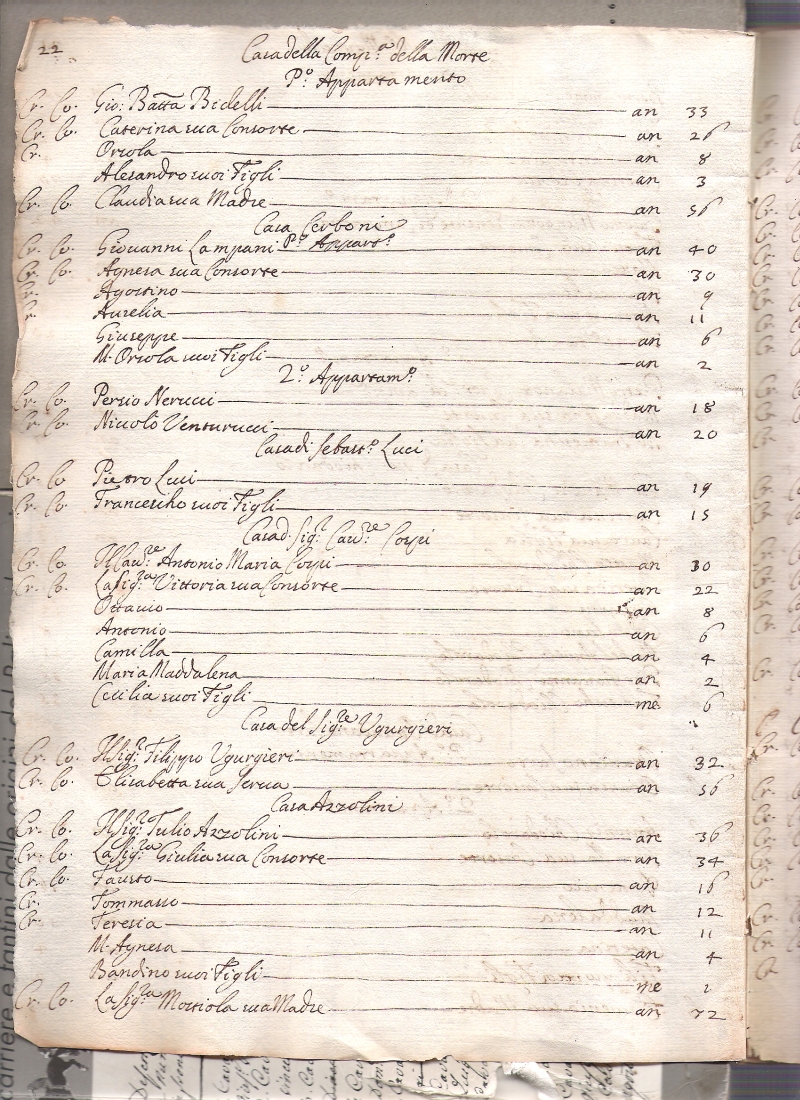 22
Casa della Comp.a della Morte
P.o Appartamento
Cr. Co. Gio: Batta Bidelli an 33
Cr. Co. Caterina sua Consorte an 26
Cr. Orsola an 8
Alesandro suoi Figli an 3
Cr. Co. Claudia sua Madre an 56
Casa Cerboni
P.o Appart.o
Cr. Co. Giovanni Lampani an 40
Cr. Co. Agnesa sua Consorte an 30
Cr. Agostino an 9
Cr. Aurelia an 11
Giuseppe an 6
M. Orsola suoi Figli an 2
2.o Appartam.o
Cr. Co. Persio Nerucci an 18
Cr. Co. Niccolò Venturucci an 20
Casa di Sebast.o Luci
Cr. Co. Pietro Luci an 19
Cr. Co. Francescho suoi Figli an 15
Casa d. Sig.r Cav.re Cospi
Cr. Co. Il Cav.re Antonio Maria Cospi an 30
Cr. Co. La Sig.ra Vittoria sua Consorte an 22
Ottavio an 8
Antonio an 6
Camilla an 4
Maria Maddalena an 2
Cecilia suoi Figli me 6
Casa del Sig.re Vgurgieri
Cr. Co. Il Sig.r Filippo Vgurgieri an 32
Cr. Co. Elisabetta sua Serva an 56
Casa Azzolini
Cr. Co. Il Sig.r Tulio Azzolini are 36
Cr. Co. La Sig.ra Giulia sua Consorte an 34
Cr. Co. Fausto an 16
Cr. Tommasso an 12
Cr. Teresia an 11
M. Agnesa an 4
Bandino suoi Figli me 2
Cr. Co. La Sig.ra Mostiola sua Madre an 72